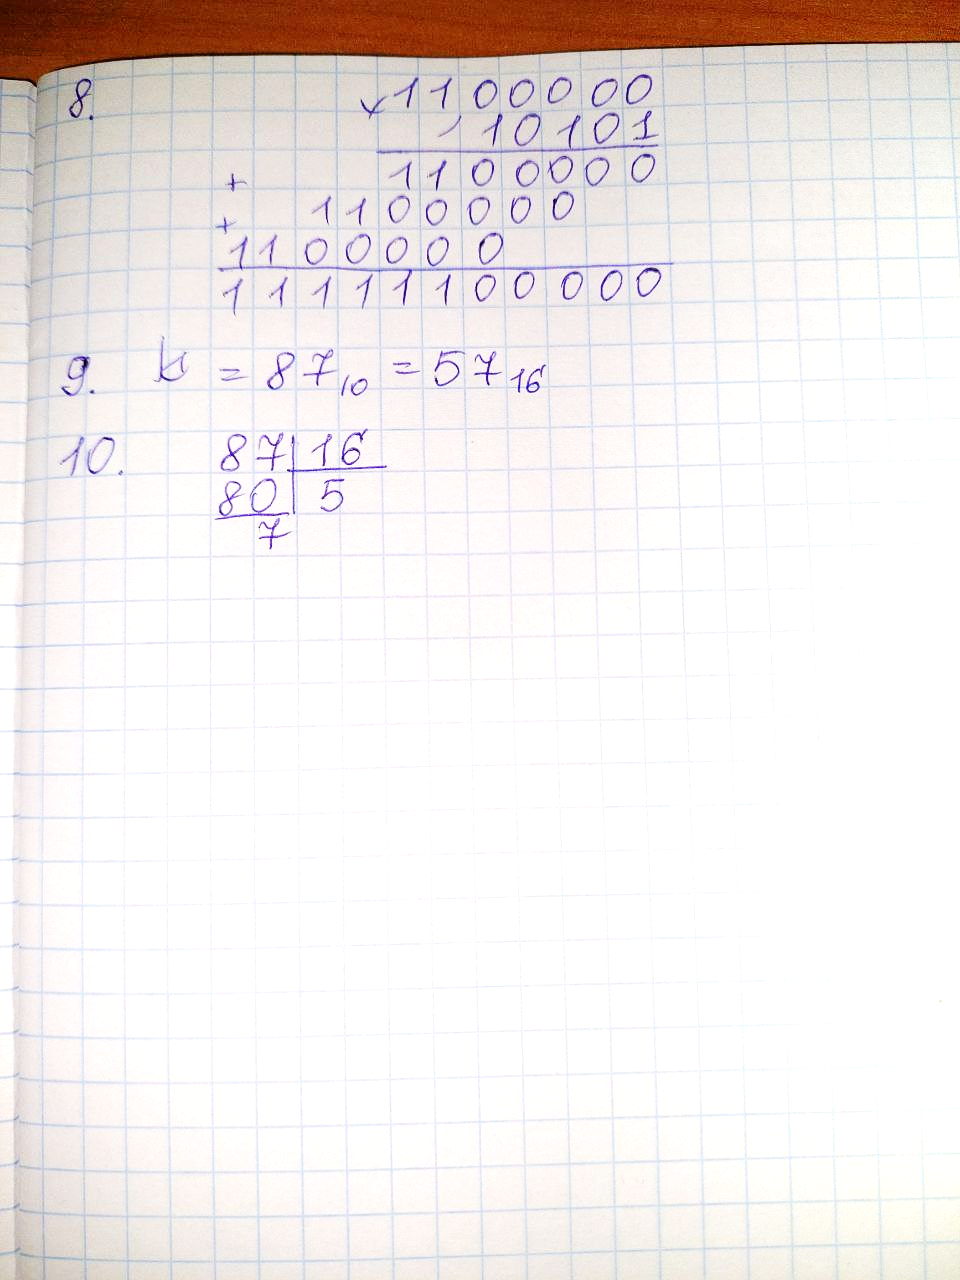 8. × 1100000
10101
1100000
+
1100000
+
1100000
11111100000
9. = 87₁₀ = 57₁₆
10. 87 | 16
80 | 5
7